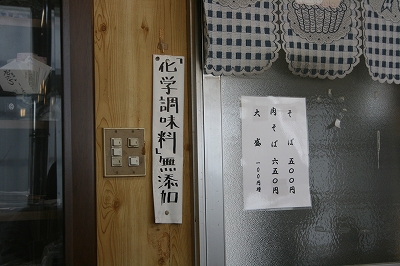 「化学調味料」無添加
そば 五００円
肉そば 六五０円
大盛 一００円増